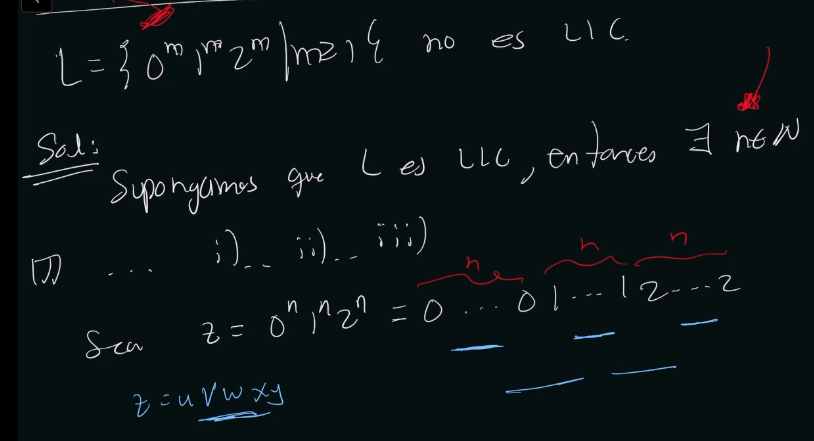 L = { 0^m 1^m 2^m | m ≥ 1 } no es LIC.
Sol:
Supongamos que L es LLC, entonces ∃ n ∈ N
... i) -- ii) -- iii)
n n n
Sea z = 0^n 1^n 2^n = 0 ... 0 1 ... 1 2 ... 2
z = u v w x y